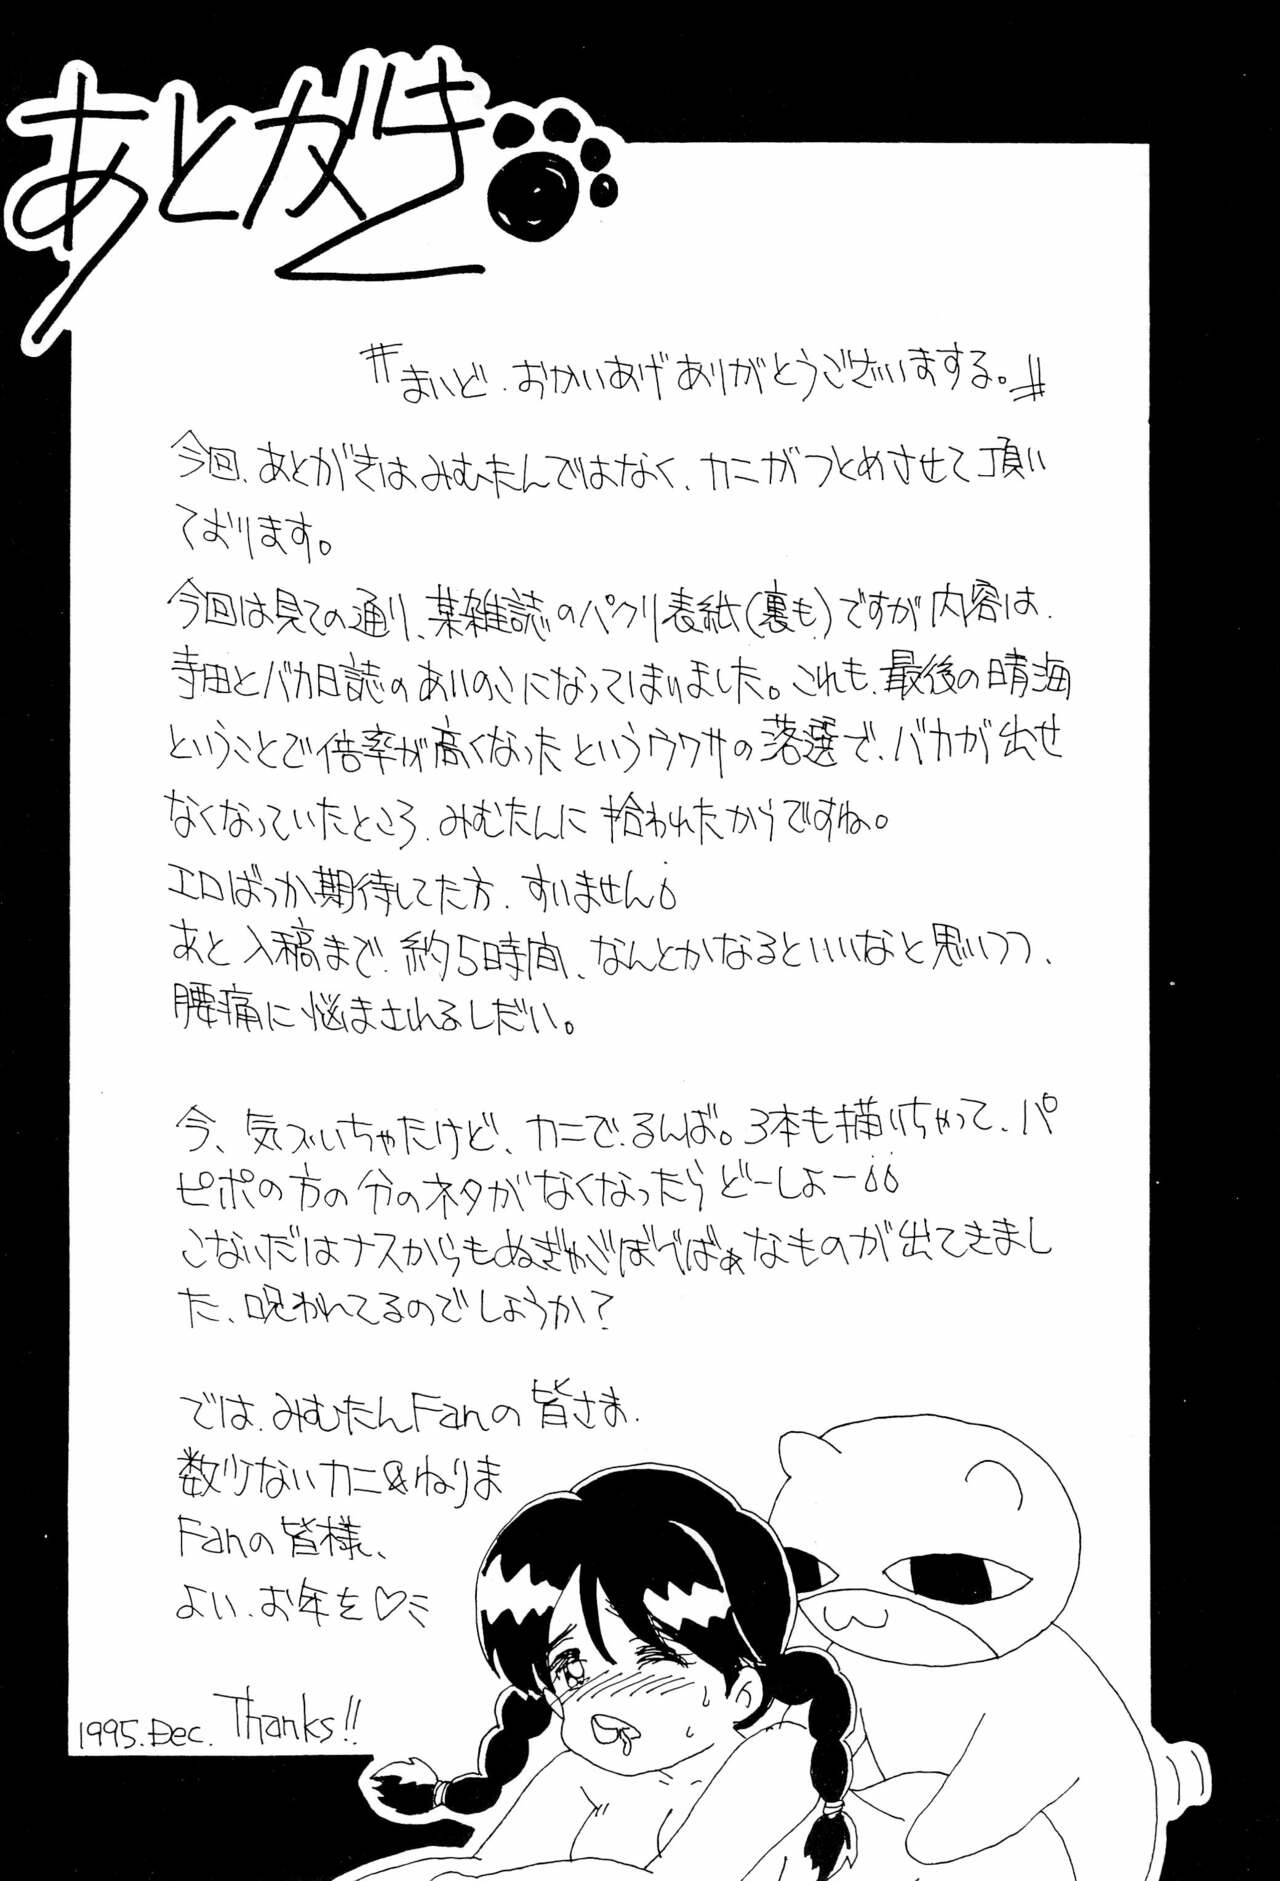 あとがき
〝まいど、おかいあげありがとうございまする。〟
今回、あとがきはみむたんではなく、カニがつとめさせて頂い
ております。
今回は見ての通り、某雑誌のパクリ表紙(裏も)ですが内容は、
寺田とバカ日誌のあいのこになってしまいました。これも、最後の晴海
ということで倍率が高くなったというウワサの落選で、バカが出せ
なくなっていたところ、みむたんに拾われたからですね。
エロばっか期待してた方、すいません
あと入稿まで、約5時間、なんとかなるといいなと思いつつ、
腰痛に悩まされるしだい。
今、気づいちゃたけど、カニで、るんば。3本も描いちゃって、パ
ピポの方の分のネタがなくなったらどーしよー
こないだはナスからもぬぎゃごぼべばぁなものが出てきまし
た、呪われてるのでしょうか?
では、みむたんFanの皆さま、
数少ないカニ&ねりま
Fanの皆様、
よい、お年を♡ミ
1995.Dec. Thanks!!